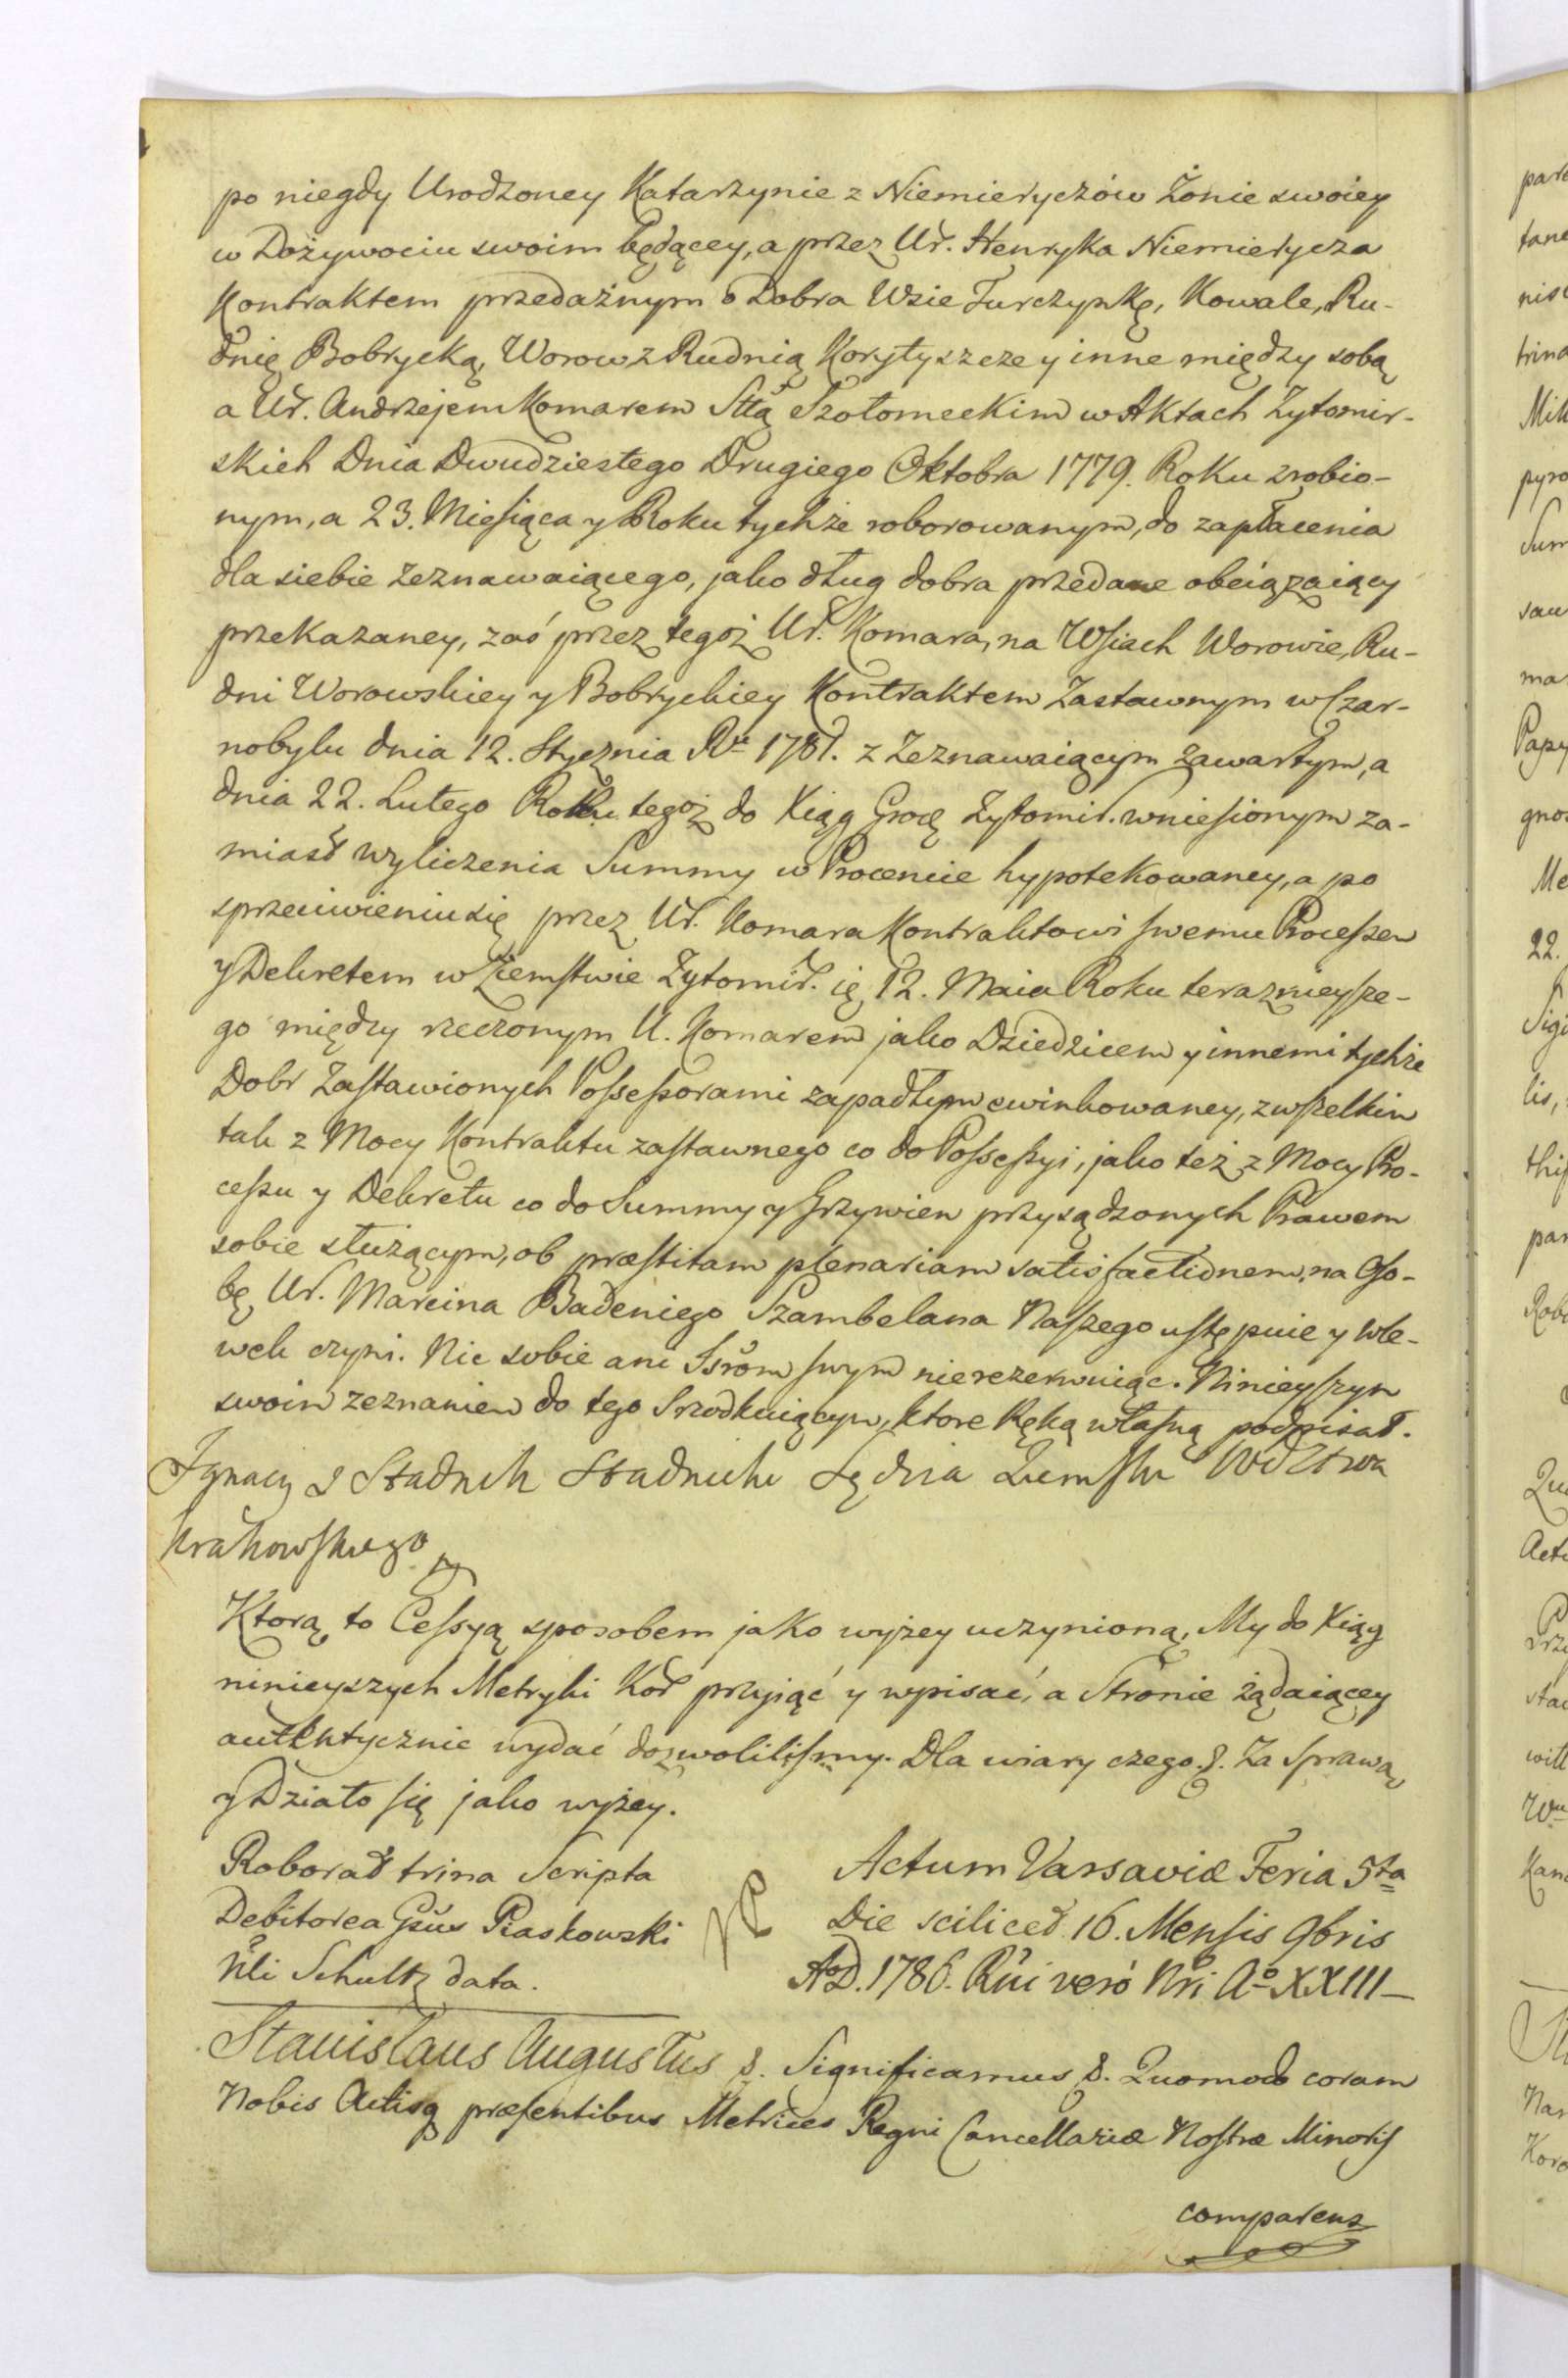 po niegdy Urodzoney Katarzynie z Niemieryczów Żonie swoiey
w Dożywociu swoim będącey, a przez Ur. Henryka Niemierycza
Kontraktem przedażnym o Dobra Wsie Turczynkę, Kowale, Ru-
dnię Bobrycką, Worow z Rudnią Korytyszcze y inne między sobą
a Ur. Andrzejem Komarem Sttą Szołomeckim w Aktach Zytomir-
skich Dnia Dwudziestego Drugiego Oktobra 1779. Roku zrobio-
nym, a 23. Miesiąca y Roku tychże roborowanym, do zapłacenia
dla siebie zeznawaiącego, jako dług dobra przedane obciązaiący
przekazaney, zaś przez tegoż Ur. Komara, na Wsiach Worowie, Ru-
dni Worowskiey y Bobryckiey Kontraktem Zastawnym w Czar-
nobylu dnia 12. Stycznia Ru 1781. z Zeznawaiącym zawartym, a
dnia 22. Lutego Roku tegoż do Xiąg Grodz Zytomir. wniesionym za-
miast wyliczenia Summy w Procencie hypotekowaney, a po
sprzeciwieniu się przez Ur. Komara Kontraktowi swemu Processem
y Dekretem w Ziemstwie Zytomir. 12. Maia Roku teraznieysze-
go między rzeczonym U. Komarem jako Dziedzicem y innemi tychże
Dobr Zastawionych Possessorami zapadłym ewinkowaney, z wszelkim
tak z Mocy Kontraktu zastawnego co do Possessyi, jako też z Mocy Pro-
cessu y Dekretu co do Summy y Grzywien przysądzonych Prawem
sobie służącym, ob præstitam plenariam satisfactionem, na Oso-
bę Ur. Marcina Badeniego Szambelana Naszego ustępuie y wle-
wek czyni. Nic sobie ani Ssrom swym nierezerwuiąc. Ninieyszym
swoim zeznaniem do tego Srzodkuiącym, ktore Ręką własną podpisał.
Ignacy z Stadnik Stadnicki Sędzia Ziemski Wdztwa
Krakowskiego
Ktorą to Cessyą sposobem jako wyżey uczynioną, My do Xiąg
ninieyszych Metryki Kor przyiąć y wpisać, a Stronie żądaiącey
autentycznie wydać dozwolilismy. Dla wiary czego. &. Za Sprawą
y Działo się jako wyżey.
Roborat trina Scripta
Debitorea Gsus Piaskowski
Nli Schultz data.
Actum Varsaviæ Feria 5ta
Die scilicet 16. Mensis 9bris
AoD. 1786. Rni veró Nri Ao XXIII
Stanislaus Augustus &. Significamus &. Quomodo coram
Nobis Actisq præsentibus Metrices Regni Cancellariæ Nostræ Minoris
comparens